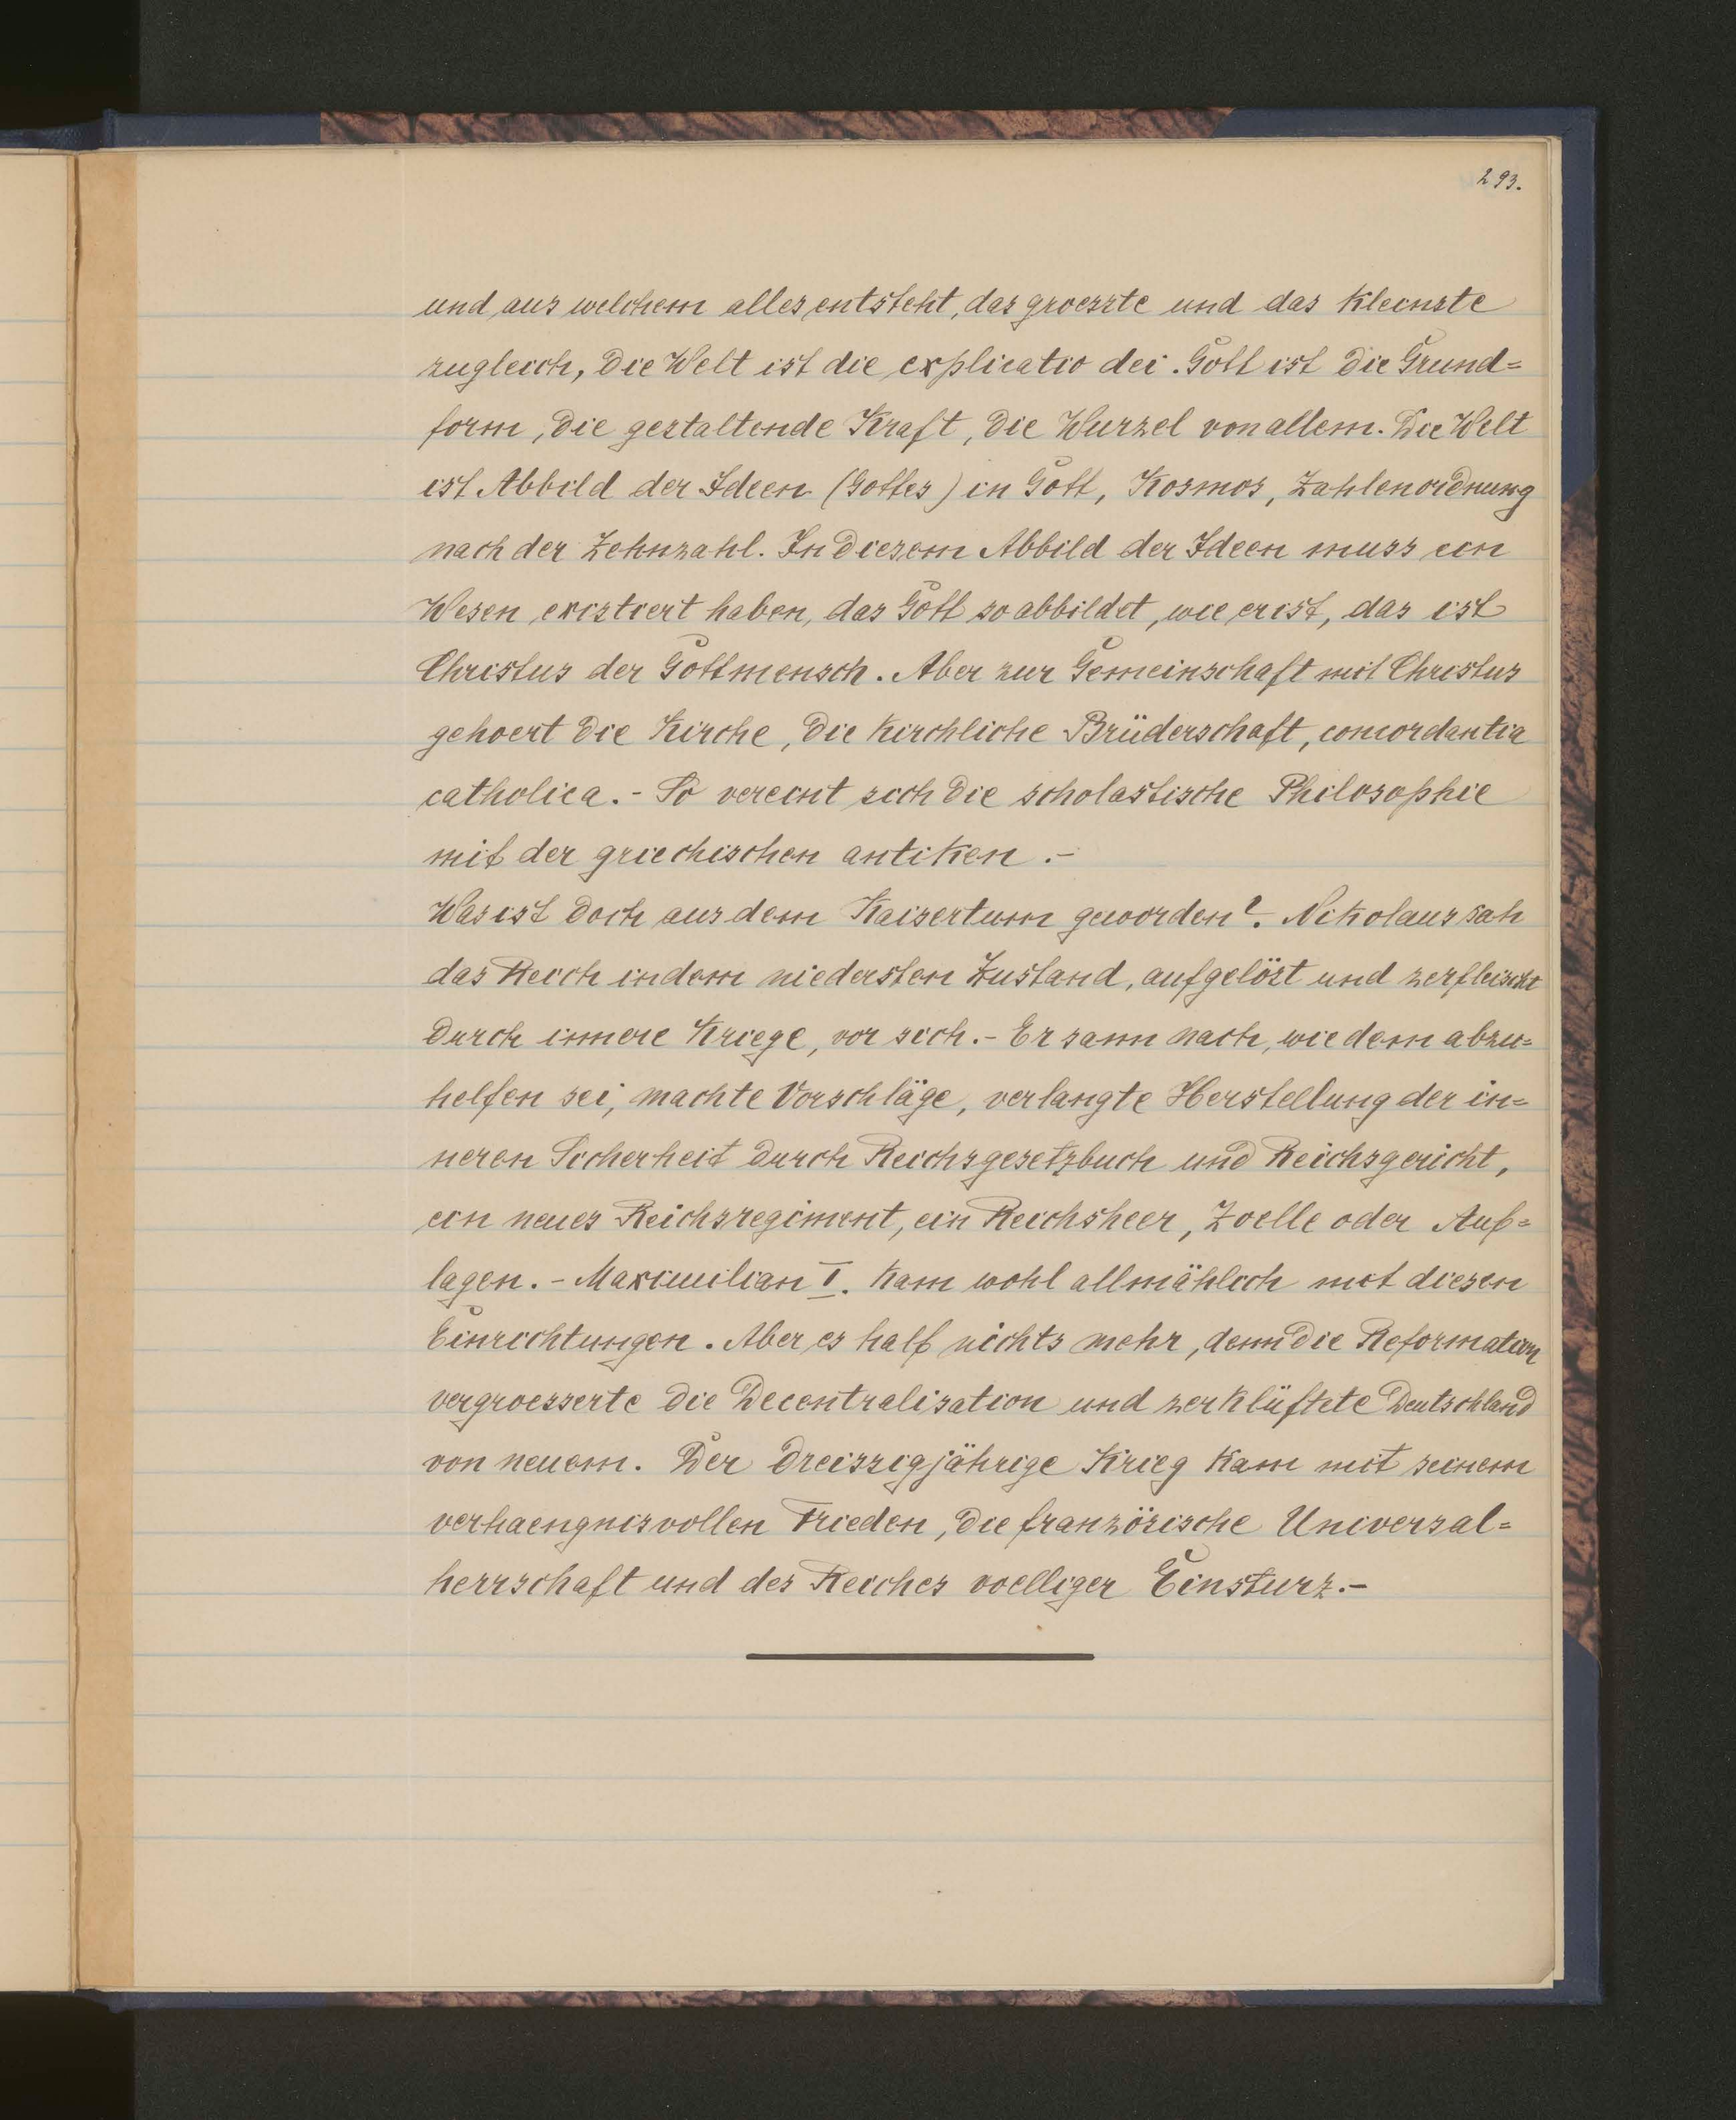 293.
und aus welchem alles entsteht, das groesste und das kleinste
zugleich, die Welt ist die explicatio dei. Gott ist die Grund=
form, die gestaltende Kraft, die Wurzel von allem. Die Welt
ist Abbild der Ideen (Gottes) in Gott, Kosmos, Zahlenordnung
nach der Zehnzahl. In diesem Abbild der Ideen muss ein
Wesen existiert haben, das Gott so abbildet, wie er ist, das ist
Christus der Gottmensch. Aber zur Gemeinschaft mit Christus
gehoert die Kirche, die kirchliche Brüderschaft, concordantia
catholica. - So vereint sich die scholastische Philosophie
mit der griechischen antiken. -
Was ist doch aus dem Kaisertum geworden?. Nikolaus sah
das Reich in dem niedersten Zustand, aufgelöst und zerfleischt
durch innere Kriege, vor sich. - Er sann nach, wie dem abzu=
helfen sei, machte Vorschläge, verlangte Herstellung der in=
neren Sicherheit durch Reichsgesetzbuch und Reichsgericht,
ein neues Reichsregiment, ein Reichsheer, Zoelle oder Auf=
lagen. - Maximilian I. kam wohl allmählich mit diesen
Einrichtungen. Aber es half nichts mehr, denn die Reformation
vergroesserte die Decentralisation und zerklüftete Deutschland
von neuem. Der dreiszigjährige Krieg kam mit seinem
verhaengnisvollen Frieden, die französische Universal=
herrschaft und des Reiches voelliger Einsturz. -